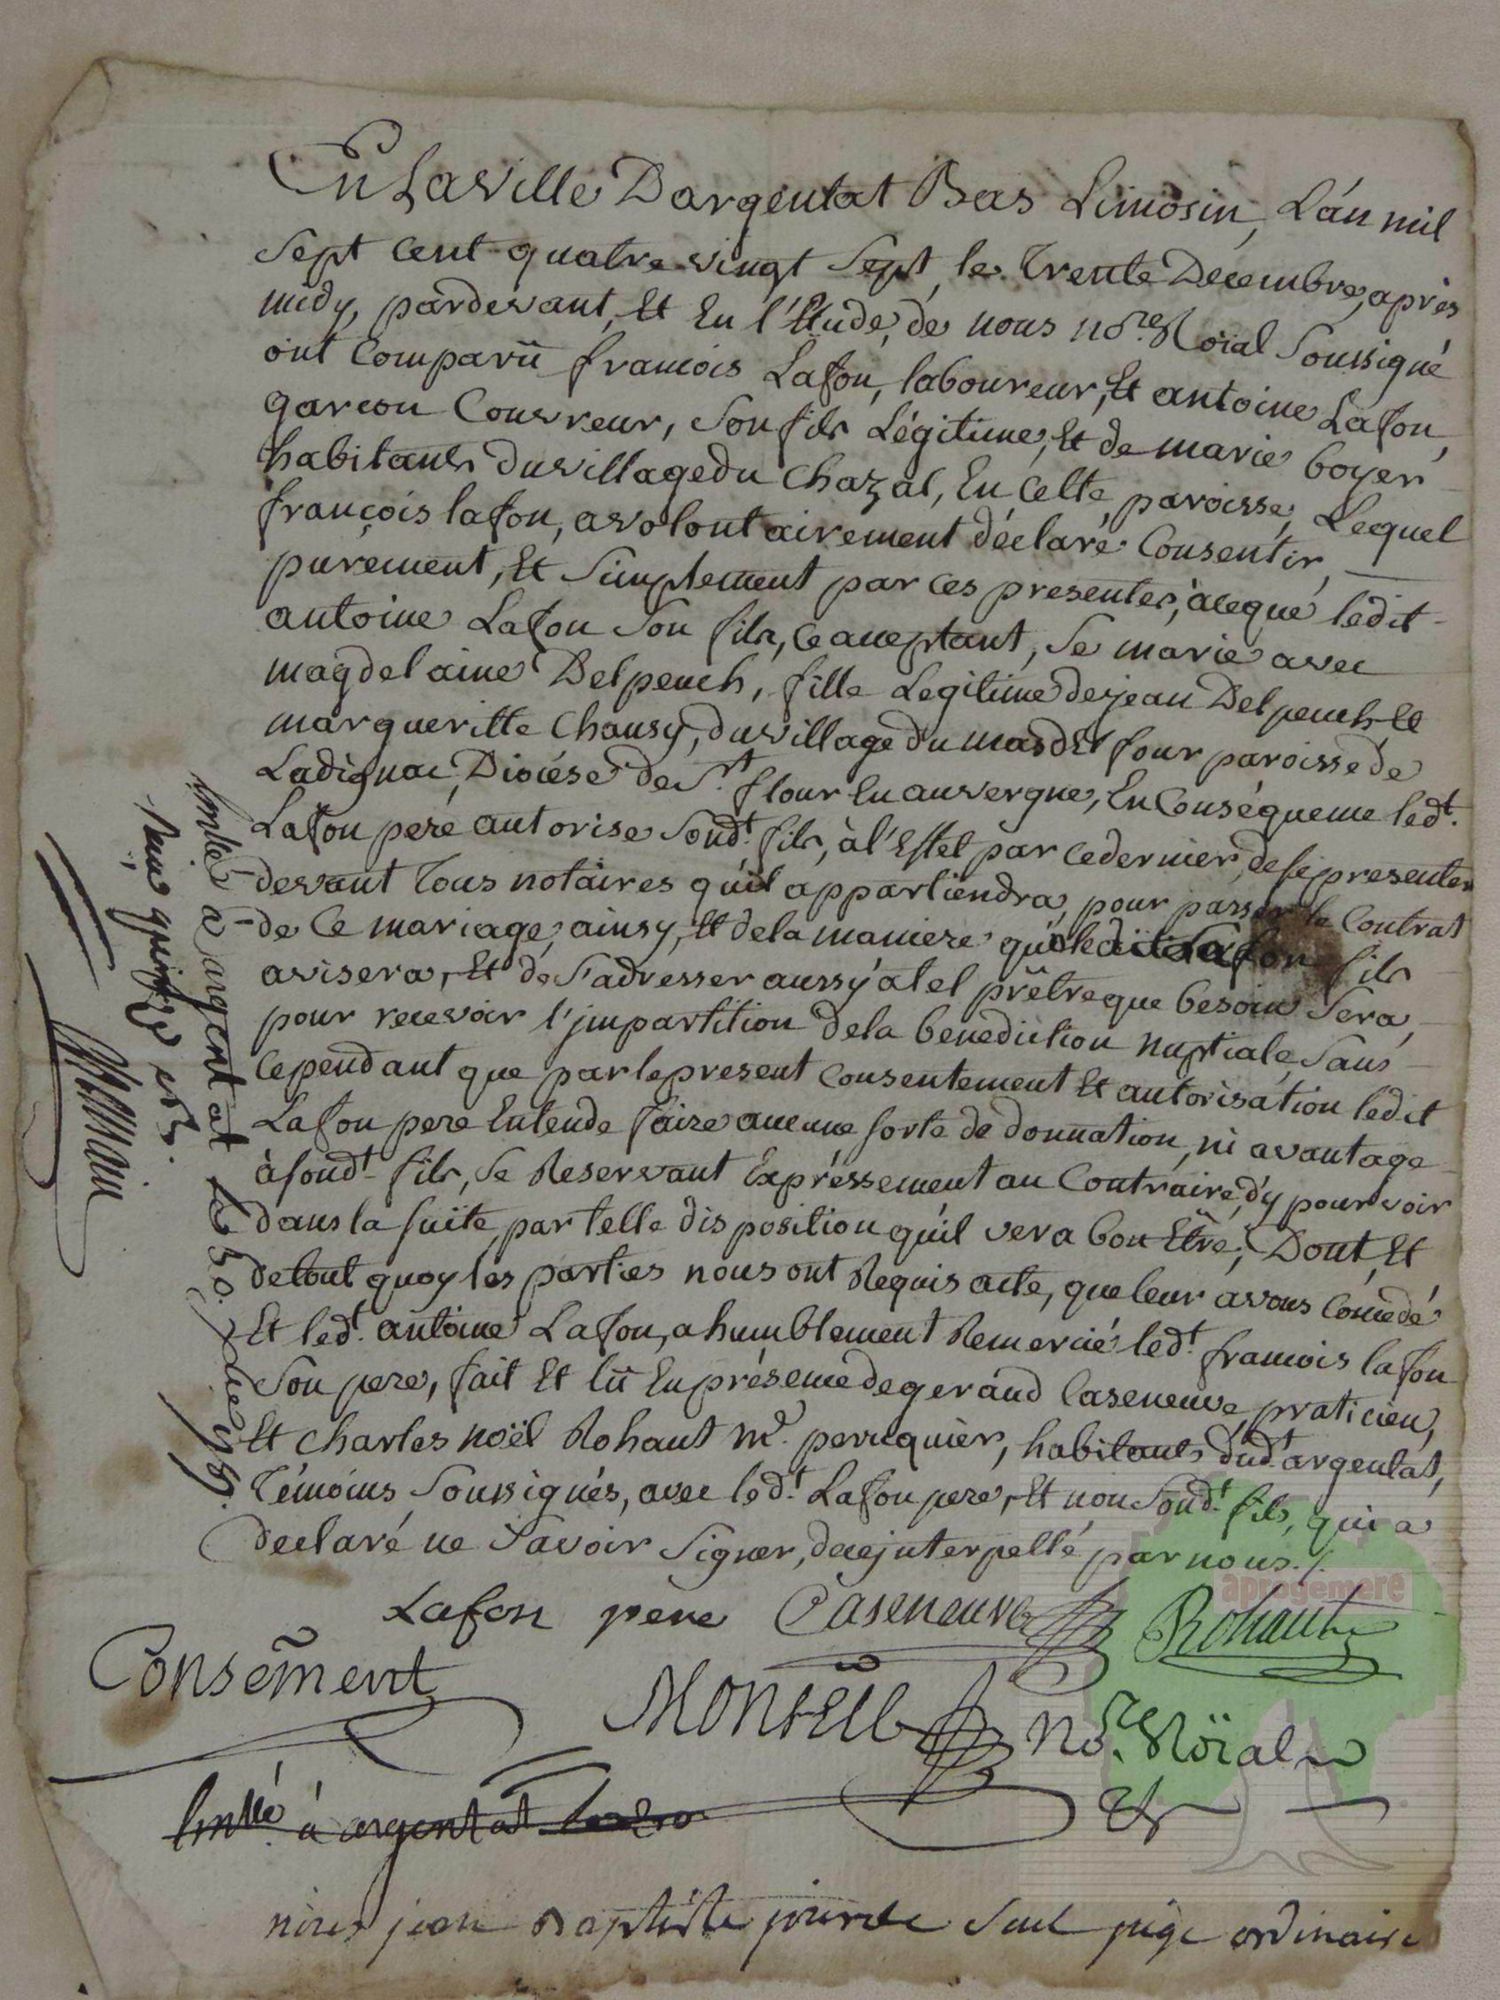 En La Ville D'argentat Bas Limosin, L'an mil
Sept cent quatre vingt Sept, le Trente Decembre, après
midy, pardevant, Et En l'Etude, de nous no.re Roïal Soussigné
ont Comparû francois Lafon, laboureur, Et antoine Lafon,
garcon Couvreur, Son fils Légitime, Et de marie boyer
habitants du village du Chazal, En Cette paroisse, Lequel
françois lafon, a volontairement déclaré Consentir,
purement, Et Simplement par ces presentes, àceque ledit
antoine Lafon Son fils, ce aceptant, Se marie avec
magdelaine Delpeuch, fille Legitime de jean Delpeuch Et
margueritte Chausy, du village du mas del four paroisse de
Ladignac, Diocése de St. flour En auvergne, En Conséquence led.t
Lafon pere autorise Sond.t fils, à l'Effet par ce dernier, de se presenter
devant Tous notaires qu'il appartiendra pour passer le Contrat
de Ce mariage, ainsy, Et de la maniere que ledit Lafon fils
avisera, Et de S'adresser aussy a tel prêtre que besoin Sera,
pour recevoir l'jmpartition de la benediction nuptiale, Sans
Cependant que par le present Consentement Et autorisation ledit
Lafon pere Entende faire aucune sorte de donnation, ni avantage
à sond.t fils, Se Reservant Expréssement au Contraire, d'y pourvoir
dans la suite, par telle disposition qu'il vera bon Etre; Dont, Et
de tout quoy les parties nous ont Requis acte, que leur avons Concédé
Et led.t antoine Lafon, a humblement Remercié led.t francois lafon
Son pere, fait Et lû En présence de gerând Caseneuve, praticien,
Et Charles noël Rohaut m.e perruquier, habitants dud.t argentat,
Témoins Soussignés, avec led.t Lafon pere, Et non Sond.t fils, qui a
declaré ne Savoir Signer, de ce jnterpellé par nous./.
Lafon pere Caseneuve Rohaut
Consẽment
Monteil No.re Roïal
Conllé à argentat
nous jean Baptiste jourde Seul juge ordinaire
Conllé à argentat le 30 Xbre 1787.
Reçu quinze sols
aprogemere